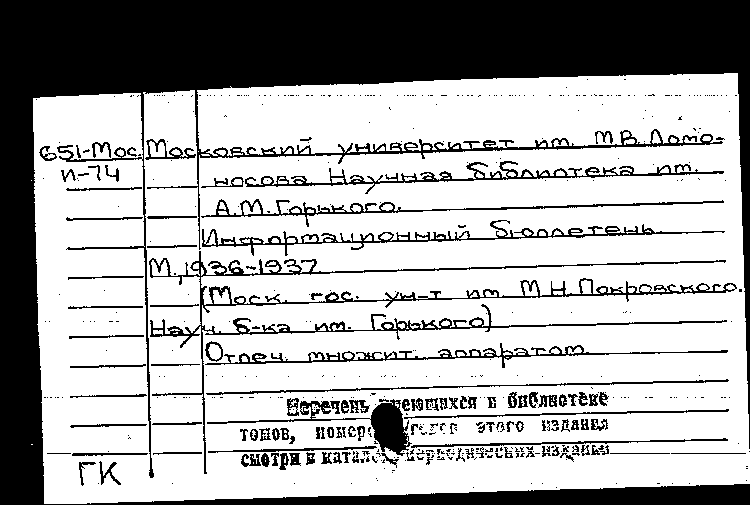 651-Мос. Московский университет им. М.В. Ломо-
И-74 носова. Научная библиотека им.
А.М. Горького.
Информационный бюллетень.
М., 1936-1937
(Моск. гос. ун-т им. М.Н. Покровского.
Науч. б-ка им. Горького)
Отпеч. множит. аппаратом.
Перечень имеющихся в библиотеке
томов, этого издания
смотри в каталоге периодических изданий
ГК